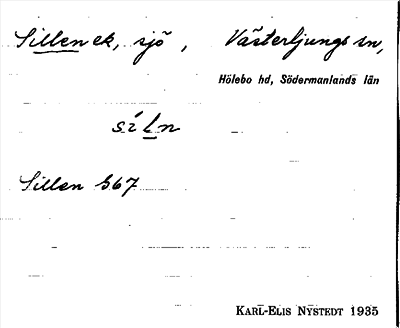 Sillen ek, sjö, Västerljungs sn,
Hölebo hd, Södermanlands län
síln
Sillen G67
KARL-ELIS NYSTEDT 1935